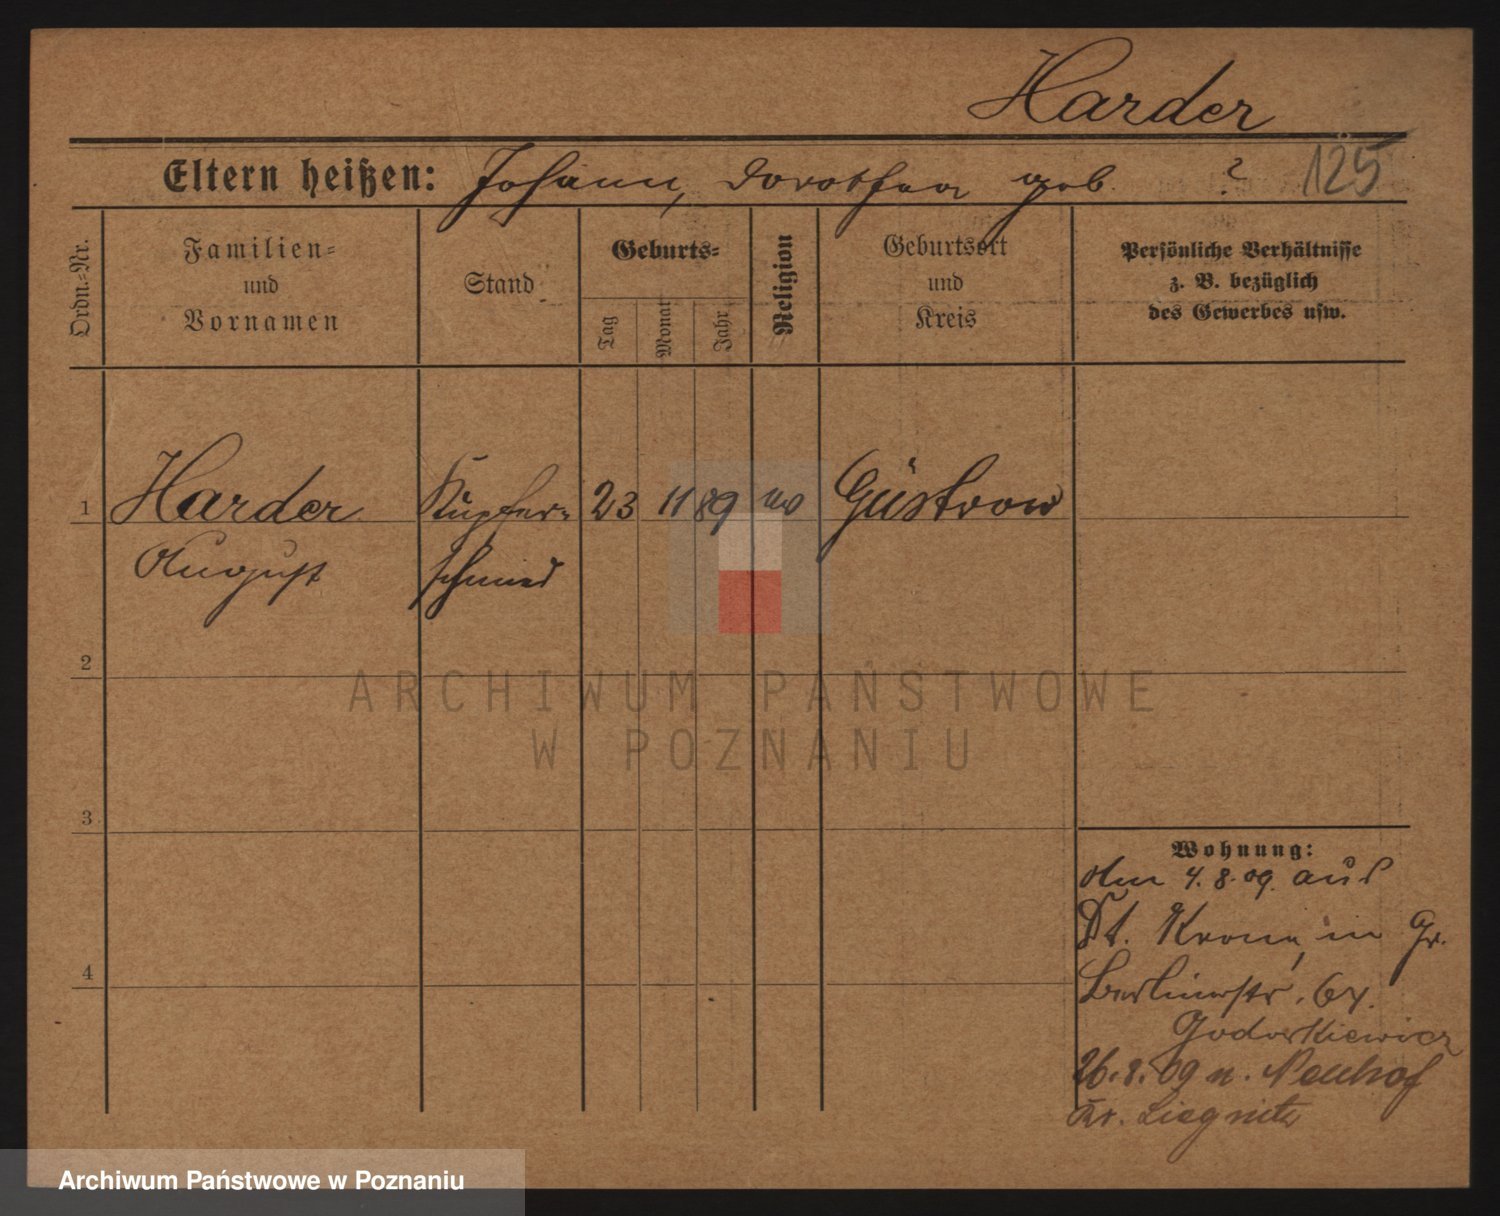 Harder
Eltern heißen: Johann, Dorothea geb. ? 125
Ordn.-Nr.
Familien-
und
Vornamen
Stand
Geburts-
Tag
Monat
Jahr
Religion
Geburtsort
und
Kreis
Persönliche Verhältnisse
z. B. bezüglich
des Gewerbes usw.
1 Harder Kupfer- 23 11 89 ev Güstrow
August schmied
2
3
4
Wohnung:
Am 4.8.09. aus
Dt. Krone, in Gr.
Berlinerstr. 64.
26.8.09 n. Neuhof
Kr. Liegnitz
ARCHIWUM PAŃSTWOWE
W POZNANIU
Archiwum Państwowe w Poznaniu